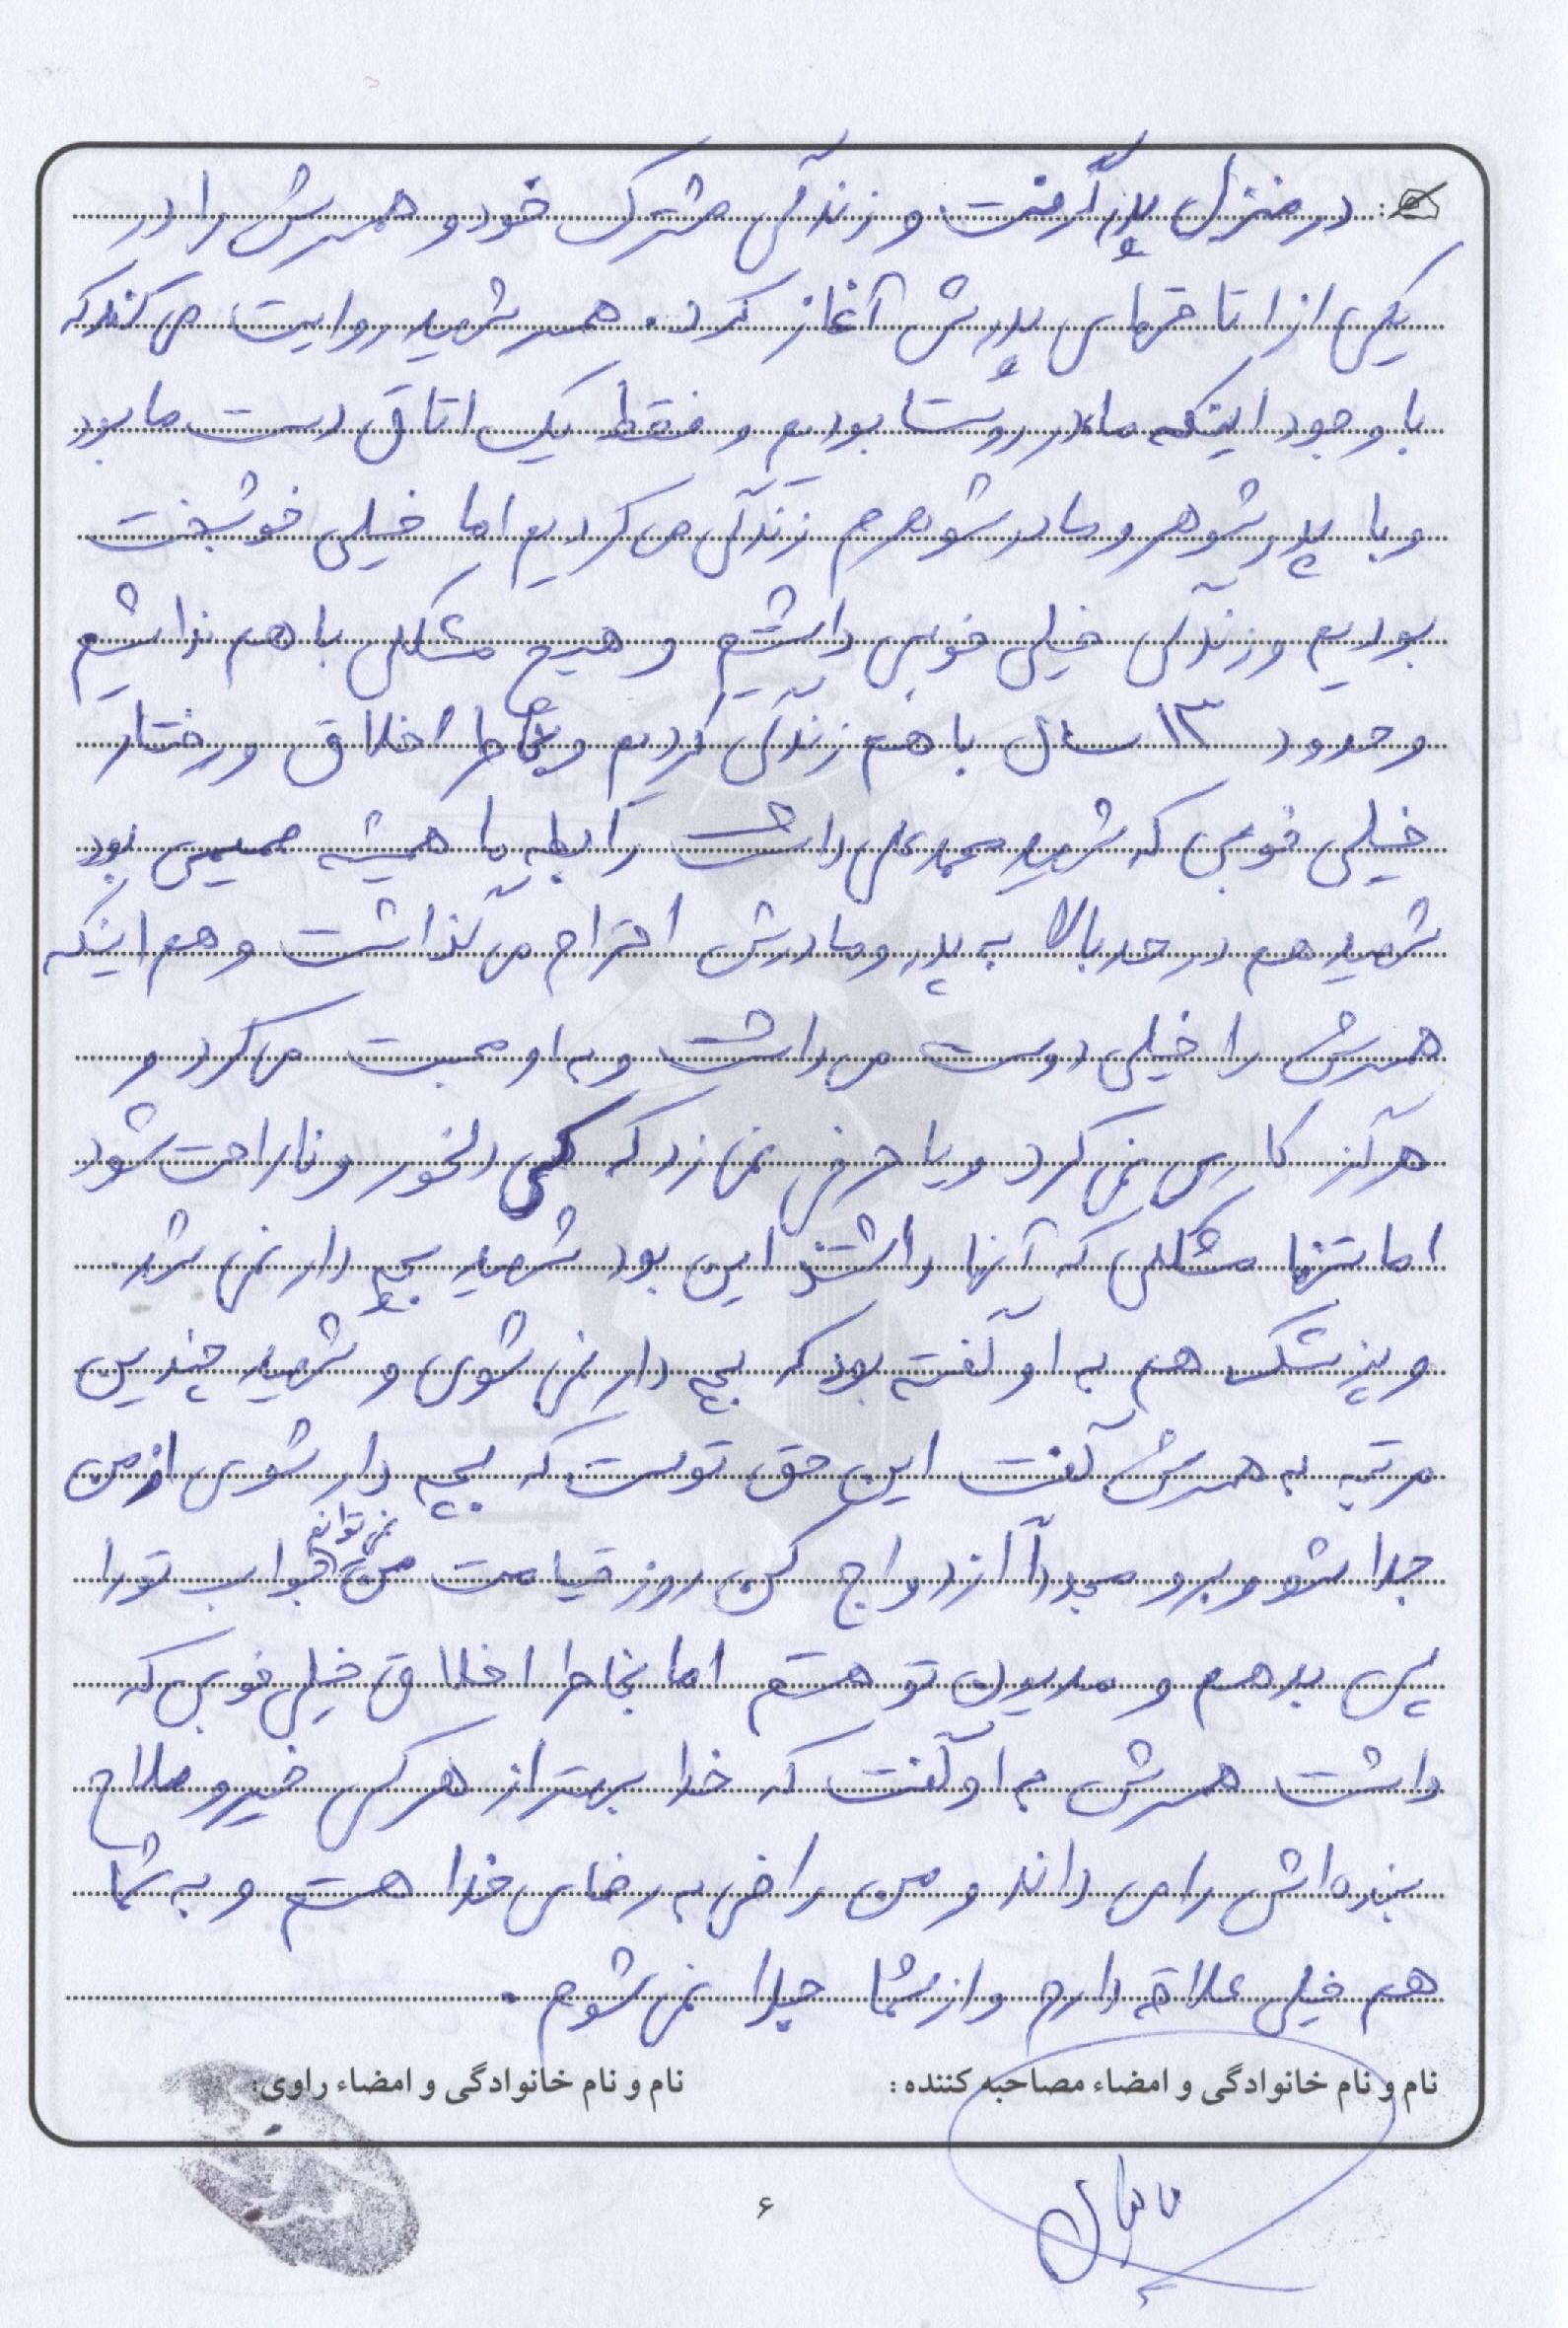 در منزل پدر گرفت و زندگی مشترک خود و همسرش را در
یکی از اتاقهای پدرش آغاز کرد. همسر شهید روایت می کند که
با وجود اینکه ما در روستا بودیم و فقط یک اتاق دست ما بود
و با پدر شوهر و مادر شوهرم زندگی می کردیم اما خیلی خوشبخت
بودیم و زندگی خیلی خوبی داشتیم و هیچ مشکلی با هم نداشتیم
و حدود ۱۳ سال با هم زندگی کردیم و بخاطر اخلاق و رفتار
خیلی خوبی که شهید محمدعلی داشت رابطه ما همیشه صمیمی بود
شهید هم در حد بالا به پدر و مادرش احترام می گذاشت و هم اینکه
همسرش را خیلی دوست می داشت و به او محبت می کرد و
هرگز کاری نمی کرد و یا حرفی نمی زد که کسی دلخور و ناراحت شود
اما تنها مشکلی که آنها داشتند این بود شهید بچه دار نمی شد.
و پزشک هم به او گفته بود که بچه دار نمی شوی و شهید چندین
مرتبه به همسرش گفت این حق توست که بچه دار شوی از من
جدا شو و برو مجدداً ازدواج کن روز قیامت من نمی توانم جواب تو را
پس بدهم و مدیون تو هستم اما بخاطر اخلاق خیلی خوبی که
داشت همسرش به او گفت که خدا بهتر از هر کس خیر و صلاح
بنده اش را می داند و من راضی به رضای خدا هستم و به شما
هم خیلی علاقه دارم و از شما جدا نمی شوم.
نام و نام خانوادگی و امضاء مصاحبه کننده: نام و نام خانوادگی و امضاء راوی:
۶